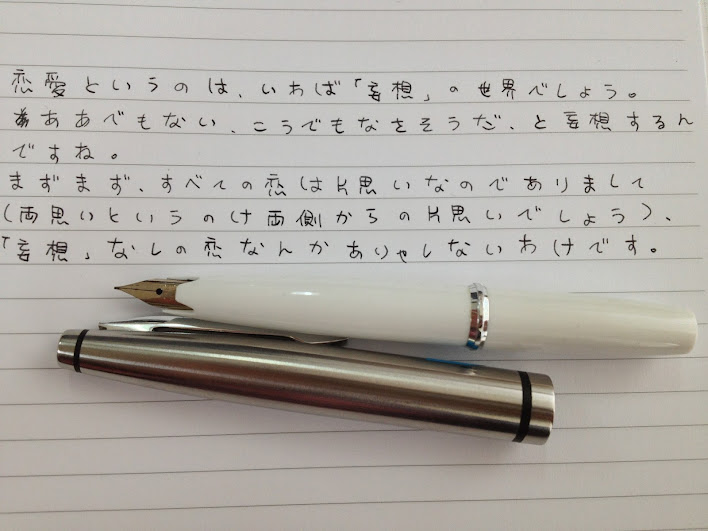 恋愛というのは、いわば「妄想」の世界でしょう。
ああでもない、こうでもなさそうだ、と妄想するん
ですね。
まずまず、すべての恋は片思いなのでありまして
（両思いというのは両側からの片思いでしょう）、
「妄想」なしの恋なんかありゃしないわけです。